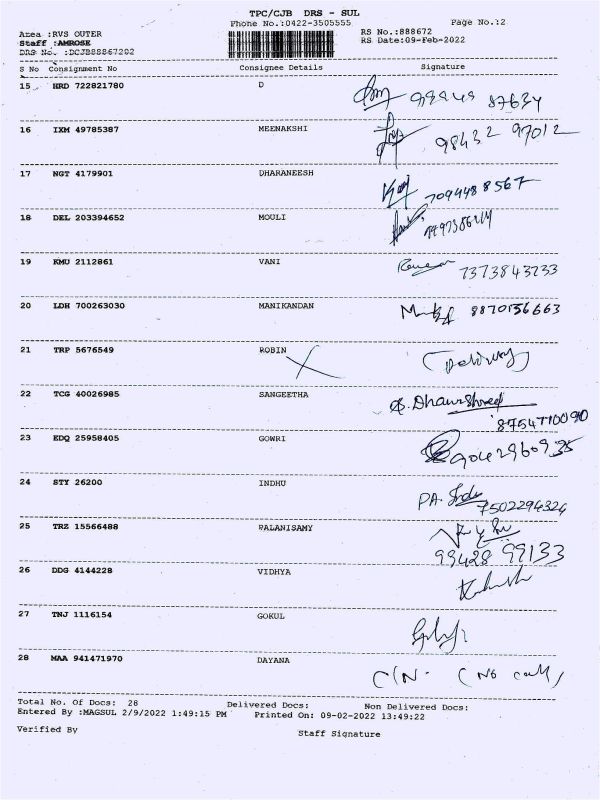 TPC/CJB DRS - SUL
Phone No.:0422-3505555
Page No.:2
Area :RVS OUTER
RS No.:888672
Staff :AMROSE
RS Date:09-Feb-2022
DRS No. :DCJB88867202
S No Consignment No Consignee Details Signature
15 HRD 722821780 D
16 IXM 49785387 MEENAKSHI
98432 97012
17 NGT 4179901 DHARANEESH
7094488567
18 DEL 203394652 MOULI
19 KMU 2112861 VANI
7373843733
20 LDH 700263030 MANIKANDAN
8870156663
21 TRP 5676549 ROBIN
22 TCG 40026985 SANGEETHA
8754770090
23 EDQ 25958405 GOWRI
9042960935
24 STY 26200 INDHU
PA. Indu 7502294324
25 TRZ 15566488 PALANISAMY
99428 99133
26 DDG 4144228 VIDHYA
27 TNJ 1116154 GOKUL
28 MAA 941471970 DAYANA
C/N. (No call)
Total No. Of Docs: 28 Delivered Docs: Non Delivered Docs:
Entered By :MAGSUL 2/9/2022 1:49:15 PM Printed On: 09-02-2022 13:49:22
Verified By
Staff Signature